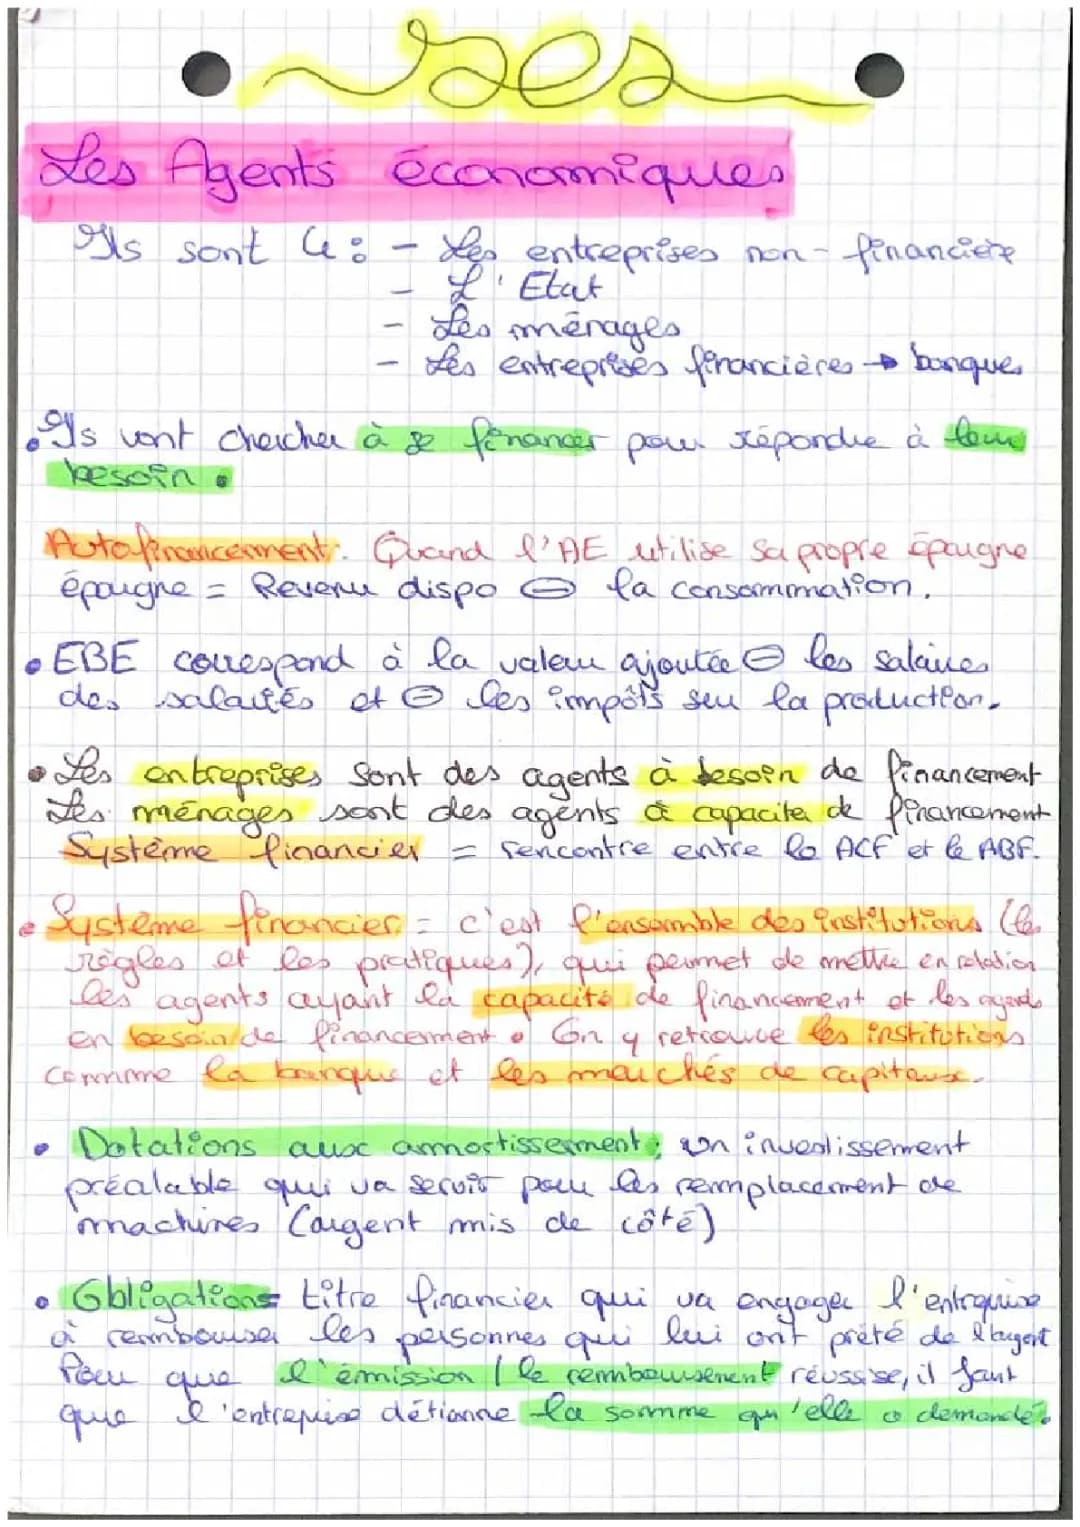 ses
Les Agents économiques
Ils sont 4 : - Les entreprises non-financière
- L'Etat
- Les ménages
- Les entreprises financières → banques
• Ils vont chercher à se financer pour répondre à leur
besoin.
Autofinancement. Quand l'AE utilise sa propre épargne
épargne = Revenu dispo ⊖ la consommation.
• EBE correspond à la valeur ajoutée ⊖ les salaires
des salariés et ⊖ les impôts sur la production.
• Les entreprises sont des agents à besoin de financement
Les ménages sont des agents à capacité de financement
Système financier = rencontre entre la ACF et le ABF.
• Système financier = c'est l'ensemble des institutions (les
règles et les pratiques), qui permet de mettre en relation
les agents ayant la capacité de financement et les agents
en besoin de financement. On y retrouve les institutions
comme la banque et les marchés de capitaux.
• Dotations aux ammortissement : un investissement
préalable qui va servir pour les remplacement de
machines (argent mis de côté)
• Obligations = titre financier qui va engager l'entreprise
à rembourser les personnes qui lui ont prêté de l'argent
Pour que l'émission / le remboursement réussisse, il faut
que l'entreprise détienne la somme qu'elle a demandé.